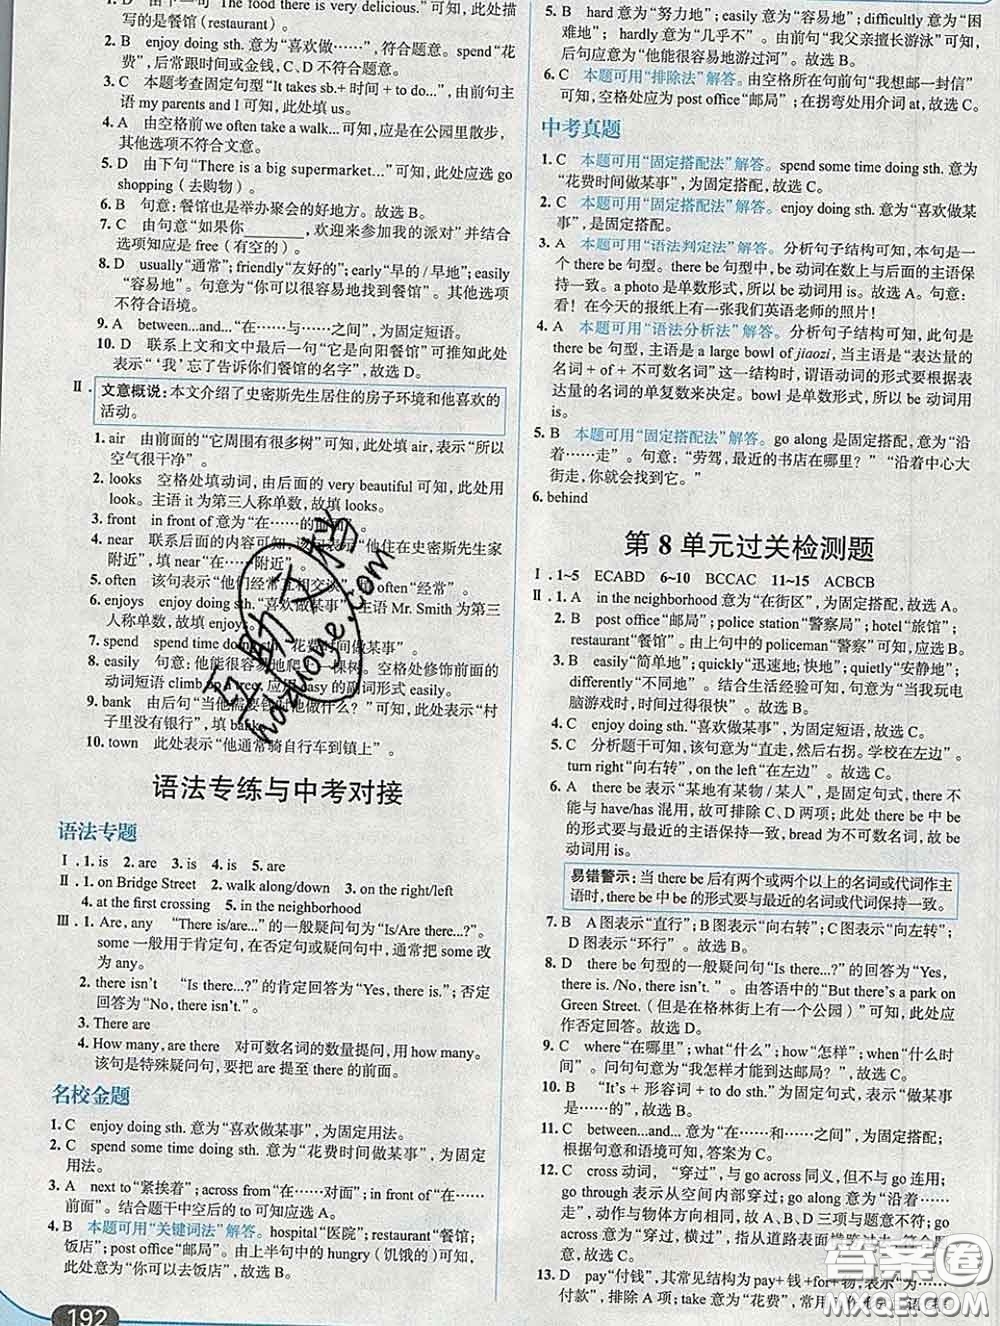 1. D 由下一句“The food there is very delicious.”可知，此处描
写的是餐馆（restaurant）。
2. B enjoy doing sth. 意为“喜欢做……”，符合题意。spend“花
费”，后常跟时间或金钱，C、D不符合题意。
3. C 本题考查固定句型“It takes sb.+ 时间 + to do...”，由前句主
语 my parents and I 可知，此处填 us。
4. A 由空格前 we often take a walk... 可知，应是在公园里散步，
其他选项不符合文意。
5. D 由下句“There is a big supermarket...”可知，此处应选 go
shopping（去购物）。
6. B 句意：餐馆也是举办聚会的好地方。故选 B。
7. C 由句意“如果你________，欢迎来参加我的派对”并结合
选项知应是 free（有空的）。
8. D usually“通常”；friendly“友好的”；early“早的 / 早地”；easily
“容易地”。句意为“你可以很容易地找到餐馆”。其他选项
不符合语境。
9. A between...and...“在……与……之间”，为固定短语。
10. D 联系上文和文中最后一句“它是向阳餐馆”可推知此处
表示“‘我’忘了告诉你们餐馆的名字”，故选 D。
Ⅱ. 文意概说：本文介绍了史密斯先生居住的房子环境和他喜欢的
活动。
1. air 由前面的“它周围有很多树”可知，此处填 air，表示“所以
空气很干净”。
2. looks 空格处填动词，由后面的 very beautiful 可知，此处用
looks。主语 it 为第三人称单数，故填 looks。
3. front in front of 意为“在……的前面”。
4. near 联系后面的内容可知，前句表示“他住在史密斯先生家
附近”，填 near“在……附近”。
5. often 该句表示“他们经常互相交谈”，填 often“经常”。
6. enjoys enjoy doing sth.“喜欢做某事”，主语 Mr. Smith 为第三
人称单数，故填 enjoys。
7. spend spend time doing sth.“花费时间做某事”。
8. easily 句意：他能很容易地爬上一棵树。空格处修饰前面的
动词短语 climb up a tree，应用 easy 的副词形式 easily。
9. bank 由后句“当他需要钱时他做什么？”可知，表示“村
子里没有银行”，填 bank。
10. town 此处表示“他通常骑自行车到镇上”。
语法专练与中考对接
语法专题
Ⅰ. 1. is 2. are 3. is 4. is 5. are
Ⅱ. 1. on Bridge Street 2. walk along/down 3. on the right/left
4. at the first crossing 5. in the neighborhood
Ⅲ. 1. Are, any “There is/are...”的一般疑问句为“Is/Are there...?”。
some 一般用于肯定句，在否定句或疑问句中，通常把 some 改
为 any。
2. there isn't “Is there...?”的肯定回答为“Yes, there is.”；否定
回答为“No, there isn't.”。
3. There are
4. How many, are there 对可数名词的数量提问，用 how many。
该句是特殊疑问句，要把 are 提至 there 的前面。
名校金题
1. C enjoy doing sth. 意为“喜欢做某事”，为固定用法。
2. C spend some time doing sth. 意为“花费时间做某事”，为固定
用法。
3. A next to“紧挨着”；across from“在……对面”；in front of“在……
前面”。结合题干中空后的 to 可知应选 A。
4. B 本题可用“关键词法”解答。hospital“医院”；restaurant“餐馆；
饭店”；post office“邮局”。由上半句中的 hungry（饥饿的）可知，
此处意为“你可以去饭店”，故选 B。
192
5. B hard 意为“努力地”；easily 意为“容易地”；difficultly 意为“困
难地”；hardly 意为“几乎不”。由前句“我父亲擅长游泳”可知，
后句应意为“他能很容易地游过河”。故选 B。
6. C 本题可用“排除法”解答。由空格所在句前句“我想邮一封信”
可知，空格处应为 post office“邮局”；在拐弯处用介词 at，故选 C。
中考真题
1. C 本题可用“固定搭配法”解答。spend some time doing sth. 意
为“花费时间做某事”，为固定搭配，故选 C。
2. C 本题可用“固定搭配法”解答。enjoy doing sth. 意为“喜欢做某
事”，是固定搭配。
3. A 本题可用“语法判定法”解答。分析句子结构可知，本句是一
个 there be 句型。there be 句型中，be 动词在数上与后面的主语保
持一致。a photo 是单数形式，所以 be 动词用 is。故选 A。句意：
看！在今天的报纸上有一张我们英语老师的照片！
4. A 本题可用“语法分析法”解答。分析句子结构可知，此句是
there be 句型，主语是 a large bowl of jiaozi，当主语是“表达量的
名词 + of + 不可数名词”这一结构时，谓语动词的形式要根据表
达量的名词的单复数来决定。bowl 是单数形式，所以 be 动词用
is。故选 A。
5. B 本题可用“固定搭配法”解答。go along 是固定搭配，意为“沿
着……走”。句意：“劳驾，最近的书店在哪里？”“沿着中心大
街走，你就会找到它。”故选 B。
6. behind
第 8 单元过关检测题
Ⅰ. 1~5 ECABD 6~10 BCCAC 11~15 ACBCB
Ⅱ. 1. A in the neighborhood 意为“在街区”，为固定搭配，故选 A。
2. B post office“邮局”；police station“警察局”；hotel“旅馆”；
restaurant“餐馆”。由上句中的 policeman“警察”可知，应选 B。
3. B easily“简单地”；quickly“迅速地；快地”；quietly“安静地”；
differently“不同地”。结合生活经验可知，句意为：“当我玩电
脑游戏时，时间过得很快”。故选 B。
4. C enjoy doing sth.“喜欢做某事”，为固定短语，故选 C。
5. C 分析题干可知，该句意为“直走，然后右拐。学校在左边”。
turn right“向右转”，on the left“在左边”。故选 C。
6. A there be 表示“某地有某物 / 某人”，是固定句型，there be
不能与 have/has 混用，故可排除 C、D 两项；there be 句型中 be
的形式要与最近的主语保持一致，bread 为不可数名词，故 be
动词用 is。
易错警示：当 there be 后有两个或两个以上的名词或代词作主
语时，there be 中 be 的形式要与最近的名词或代词保持一致。
7. B A图表示“直行”；B图表示“向右转”；C图表示“向左转”；
D 图表示“环行”。故选 B。
8. D there be 句型的一般疑问句“Is there...?”的回答为“Yes,
there is. /No, there isn't.”。由答语中的“But there's a park on
Green Street.（但是在格林街上有一个公园）”可知，此处应
作否定回答。故选 D。
9. C where“在哪里”；what“什么”；how“怎样”；when“什么时
间”。问句句意为“我怎样才能到达邮局？”故选 C。
10. B “It's + 形容词 + to do sth.”为固定句式，表示“做某事
是……的”，故选 B。
11. C between...and... 意为“在……和……之间”，为固定搭配；
根据句意和语境可知，答案为 C。
12. C cross 动词，“穿过”，与 go across 同义，但不与 go 连用；
go through 表示从空间内部穿过；go along 意为“沿着……
走”，动作与物体方向一样，故 A、B、D 三项与题意不符；go
across 意为“穿过，横过”，指从道路表面横跨过去，符合题
13. D pay“付钱”，其常见结构为 pay+ 钱 +for+ 物，表示“为……
付款”，排除 A 项；take 意为“花费”，常用
答案圈
互助文档
hdzuoye.com